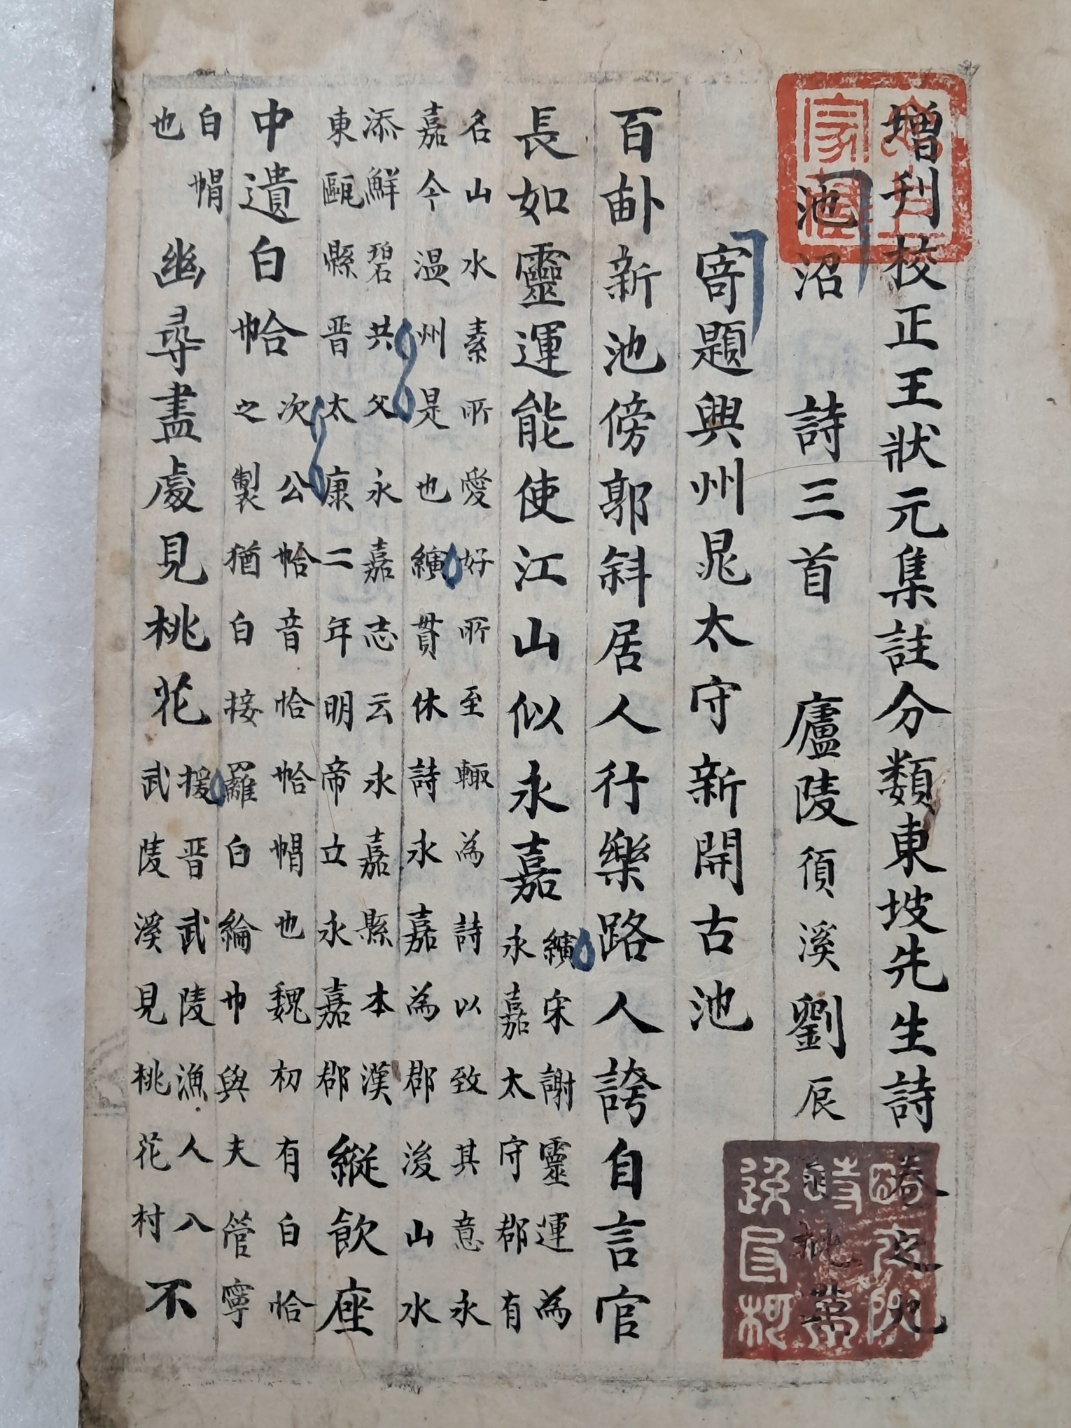 增刊校正王狀元集註分類東坡先生詩卷之
池沼 詩三首 廬陵湏溪劉辰
寄題興州晁太守新開古池
百畝新池傍郭斜居人行樂路人誇自言官
長如靈運能使江山似永嘉
縯宋謝靈運為
永嘉太守郡有
名山水素所愛好所至輒為詩以致其意永
嘉今温州是也縯貫休詩永嘉為郡後山水
添鮮碧共父永嘉志云永嘉縣本漢
東甌縣晋太康二年明帝立永嘉郡
縱飲座
中遺白帢
次公帢音恰帢帽也魏初有白恰
之製猶白接羅白綸巾與夫管寧
白帽
也
幽尋盡處見桃花
援晋武陵漁人入
武陵溪見桃花村
不